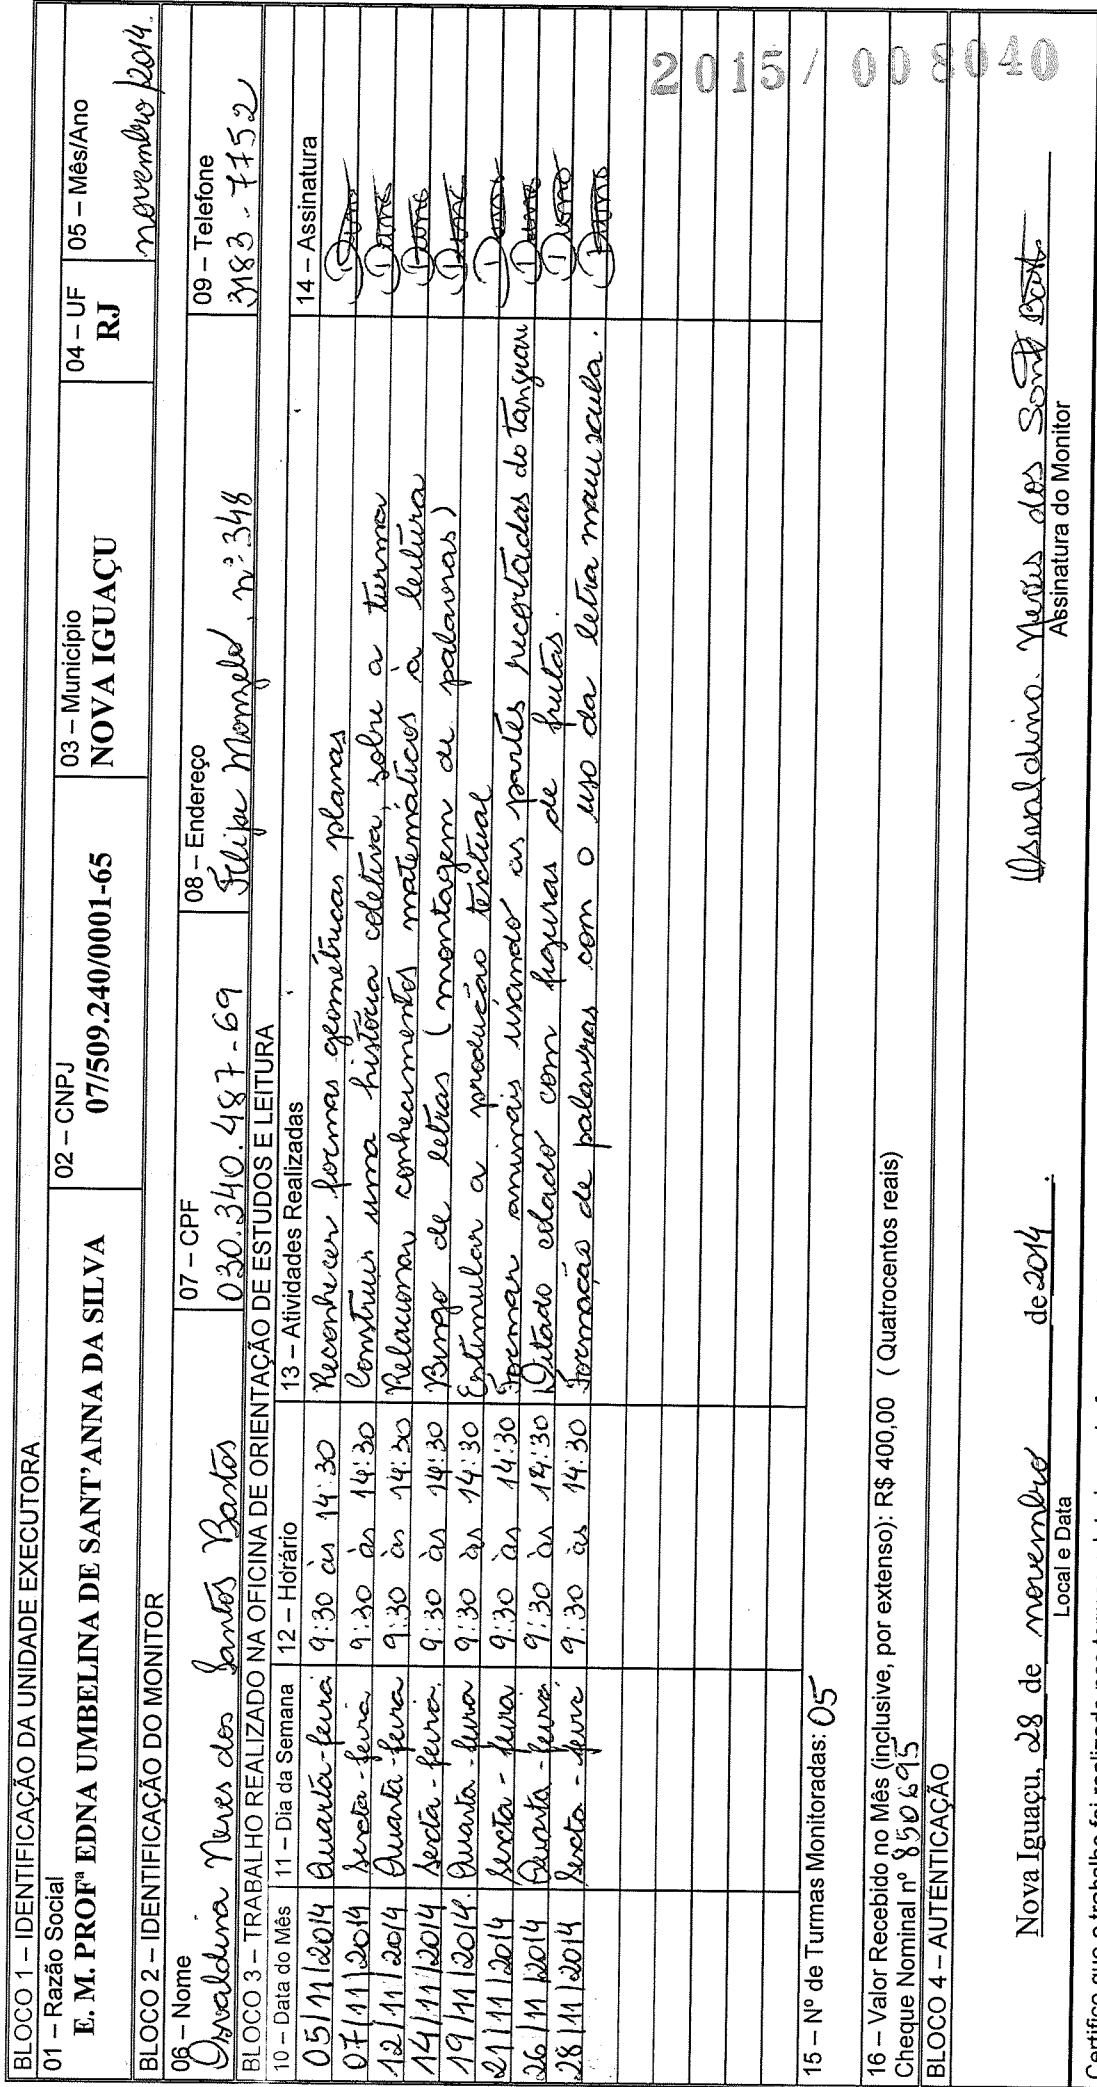 BLOCO 1 – IDENTIFICAÇÃO DA UNIDADE EXECUTORA
01 – Razão Social
E. M. PROFª EDNA UMBELINA DE SANT'ANNA DA SILVA
02 – CNPJ
07/509.240/0001-65
03 – Município
NOVA IGUAÇU
04 – UF
RJ
05 – Mês/Ano
novembro/2014.
BLOCO 2 – IDENTIFICAÇÃO DO MONITOR
06 – Nome
Osvaldina Neves dos Santos Bastos
07 – CPF
030.340.487-69
08 – Endereço
Filipe Monzelo, nº 348
09 – Telefone
3183-7752
BLOCO 3 – TRABALHO REALIZADO NA OFICINA DE ORIENTAÇÃO DE ESTUDOS E LEITURA
10 – Data do Mês 11 – Dia da Semana 12 – Horário 13 – Atividades Realizadas 14 – Assinatura
05/11/2014 Quarta-feira 9:30 às 14:30 Reconhecer formas geométricas planas
07/11/2014 sexta-feira 9:30 às 14:30 Construir uma história coletiva, sobre a turma
12/11/2014 Quarta-feira 9:30 às 14:30 Relacionar conhecimentos matemáticos à leitura
14/11/2014 sexta-feira. 9:30 às 14:30 Bingo de letras (montagem de palavras)
19/11/2014. Quarta-feira 9:30 às 14:30 Estimular a produção textual
21/11/2014 sexta-feira 9:30 às 14:30 Formar animais usando as partes recortadas do tangram
26/11/2014 Quarta-feira 9:30 às 14:30 Ditado colado com figuras de frutas.
28/11/2014 sexta-feira 9:30 às 14:30 Formação de palavras com o uso da letra maiuscula.
2015/008040
15 – Nº de Turmas Monitoradas: 05
16 – Valor Recebido no Mês (inclusive, por extenso): R$ 400,00 ( Quatrocentos reais)
Cheque Nominal nº 850695
BLOCO 4 – AUTENTICAÇÃO
Nova Iguaçu, 28 de novembro de 2014.
Local e Data
Osvaldina Neves dos Santos Bastos
Assinatura do Monitor